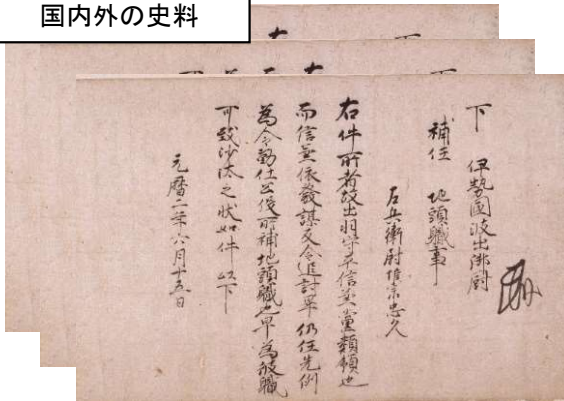 国内外の史料
下 伊勢國波出御厨
補任 地頭職事
左兵衛尉惟宗忠久
右件所者故出羽守平信兼党類領也
而信兼依發謀反令追討畢仍任先例
為令勤仕公役所補地頭職也早為彼職
可致沙汰之状如件以下
元暦二年六月十五日